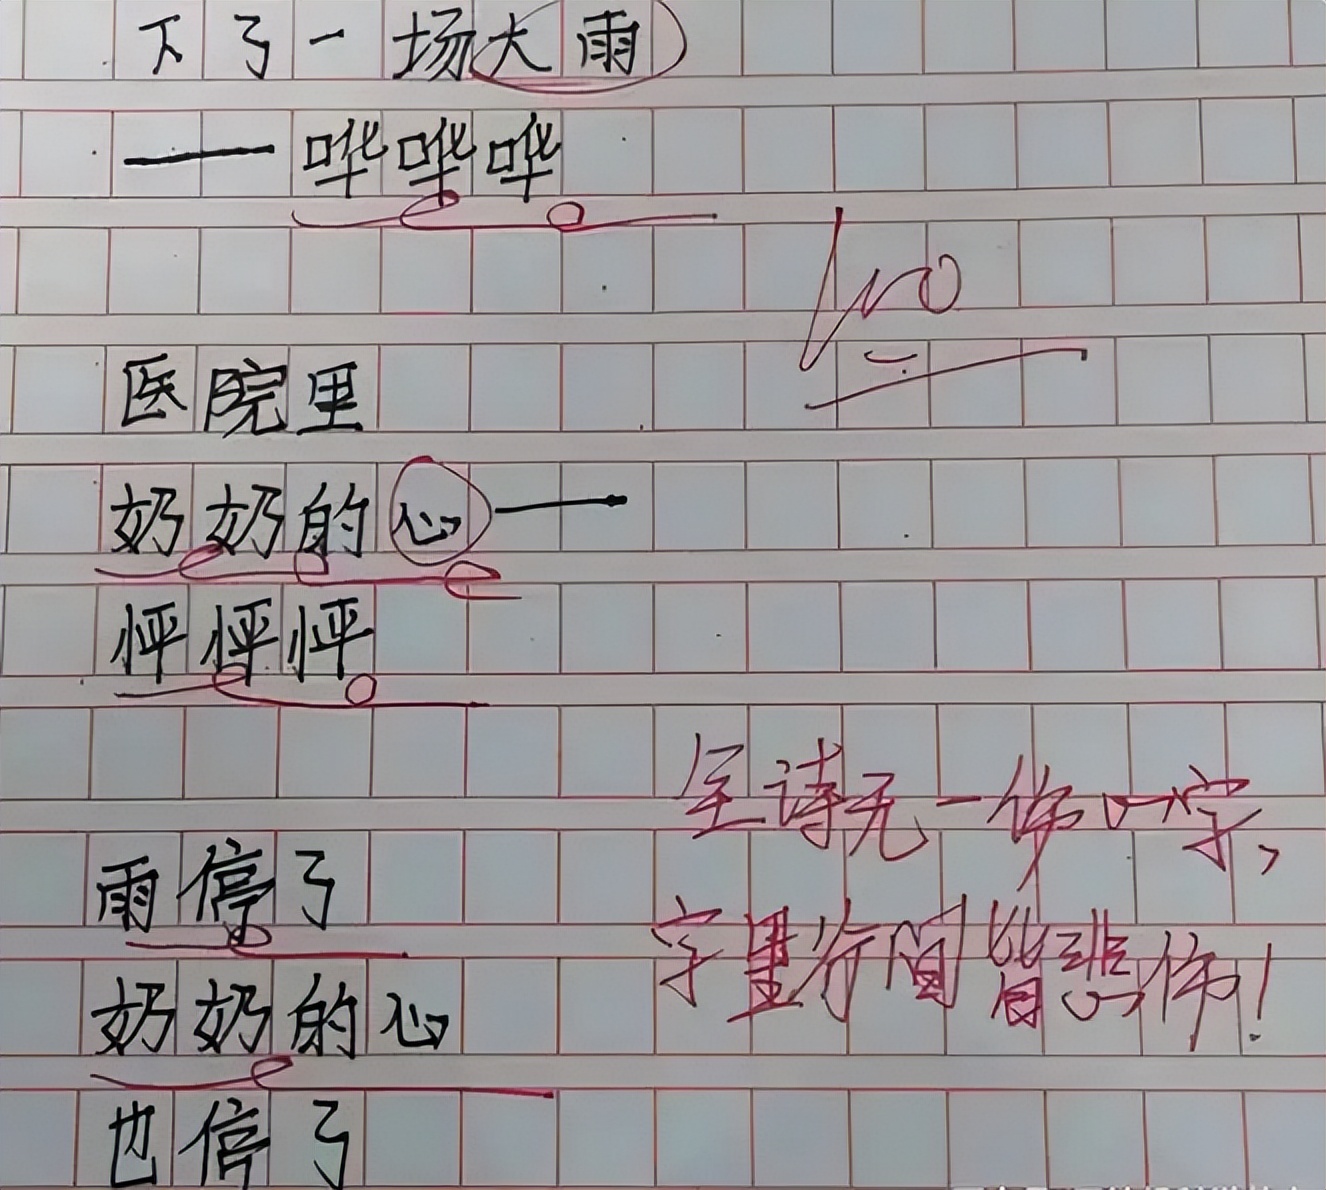 下了一场大雨
——哗哗哗
100
医院里
奶奶的心——
怦怦怦
全诗无一伤心字,
字里行间皆悲伤!
雨停了
奶奶的心
也停了